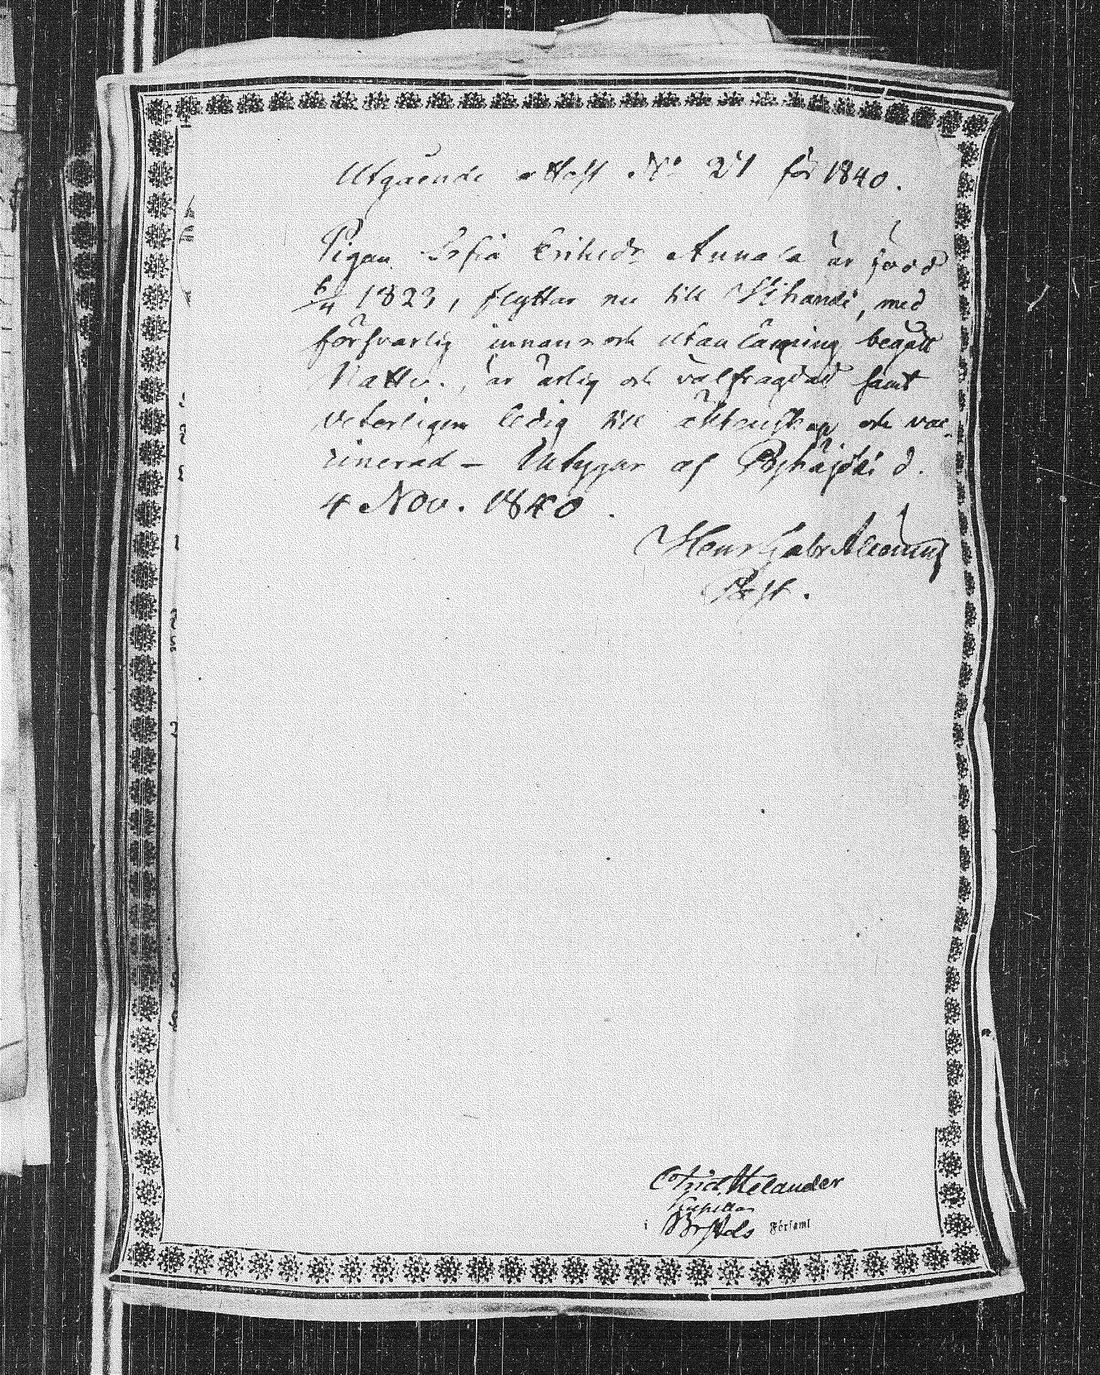 Utgående Attest No 27 för 1840.
Pigan Sofia Eriksdr Annala är född
6/4 1823, flyttar nu till Storkyro, med
försvarlig innan- och utanläsning begått
Nattv., är ärlig och välfrägdad samt
veterligen ledig till äktenskap och vac-
cinerad – Intygar af Pyhäjoki d.
4 Nov. 1840.
Henr Gabr
Past.
Helander
i Församl